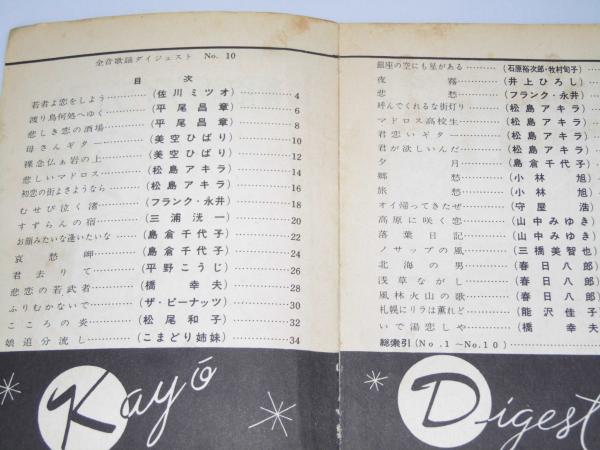 全音歌謡ダイジェスト No. 10
目次
若者よ恋をしよう………(佐川ミツオ)………4
渡り鳥何処へゆく………(平尾昌章)………6
悲しき恋の酒場………(平尾昌章)………8
母さんギター………(美空ひばり)………10
裸念仏ぁ岩の上………(美空ひばり)………12
悲しいマドロス………(松島アキラ)………14
初恋の街よさようなら………(松島アキラ)………16
むせび泣く渚………(フランク・永井)………18
すずらんの宿………(三浦洸一)………20
お顔みたいな逢いたいな………(島倉千代子)………22
哀愁岬………(島倉千代子)………24
君去りて………(平野こうじ)………26
悲恋の若武者………(橋幸夫)………28
ふりむかないで………(ザ・ピーナッツ)………30
こころの炎………(松尾和子)………32
娘追分流し………(こまどり姉妹)………34
Kayō
銀座の空にも星がある………(石原裕次郎・牧村旬子)
夜霧………(井上ひろし)
悲愁………(フランク・永井)
呼んでくれるな街灯り………(松島アキラ)
マドロス高校生………(松島アキラ)
君恋いギター………(松島アキラ)
君が欲しいんだ………(松島アキラ)
夕月………(島倉千代子)
郷愁………(小林旭)
旅愁………(小林旭)
オイ帰ってきたぜ………(守屋浩)
高原に咲く恋………(山中みゆき)
落葉日記………(山中みゆき)
ノサップの風………(三橋美智也)
北海の男………(春日八郎)
浅草ながし………(春日八郎)
風林火山の歌………(春日八郎)
札幌にリラは薫れど………(能沢佳子)
いで湯恋しや………(橋幸夫)
総索引(No.1〜No.10)………
Digest